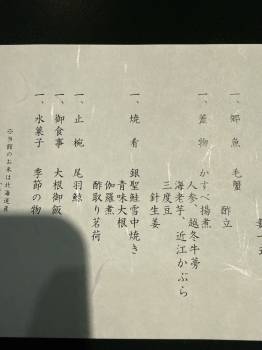 一、郷魚　毛蟹
酢立
一、蓋物　かすべ揚煮
人参、越冬牛蒡
海老芋、近江かぶら
三度豆
針生姜
一、焼肴　銀聖鮭雪中焼き
青味大根
伽羅煮
酢取り茗荷
一、止椀　尾羽鯨
一、御食事　大根御飯
一、水菓子　季節の物
※当館のお米は北海道産